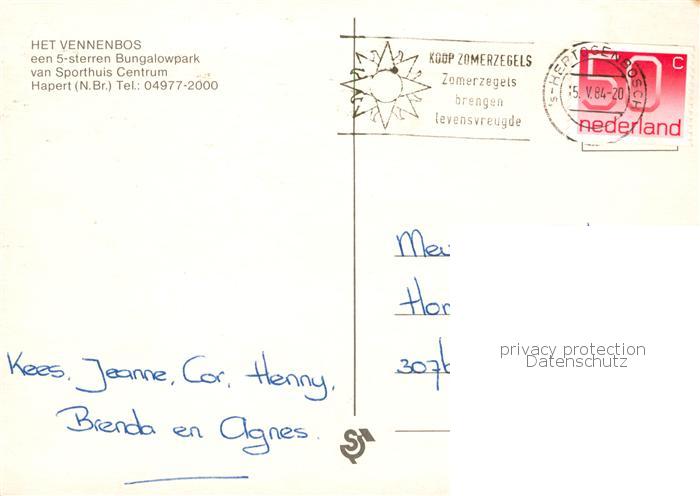 HET VENNENBOS
een 5-sterren Bungalowpark
van Sporthuis Centrum
Hapert (N.Br.) Tel.: 04977-2000
KOOP ZOMERZEGELS
Zomerzegels
brengen
levensvreugde
's-HERTOGENBOSCH
5. V. 84-20
50 c
nederland
Hor
307
privacy protection
Datenschutz
Kees, Jeanne, Cor, Henny,
Brenda en Agnes.